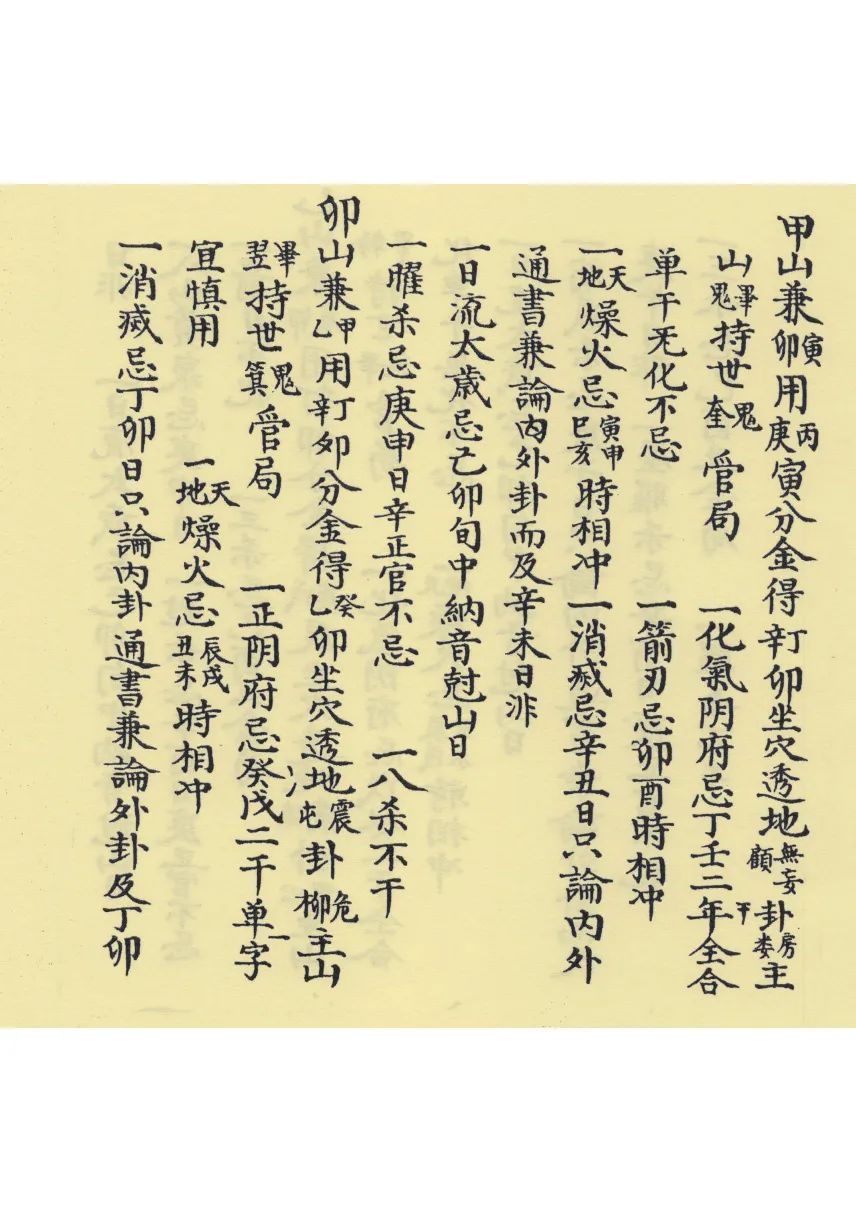 甲山兼寅卯用丙庚寅分金得辛丁卯坐穴透地無妄頤卦房娄主
山畢鬼持世鬼奎管局　一化氣阴府忌丁壬二干年全合
单干无化不忌　一箭刃忌卯酉時相冲
一天地燥火忌寅申巳亥時相冲　一消滅忌辛丑日只論内外
通書兼論内外卦而及辛未日非
一日流太歲忌己卯旬中納音尅山日
一曜杀忌庚申日辛正官不忌　一八杀不干
卯山兼甲乙用辛丁卯分金得癸乙卯坐穴透地震屯卦危柳主山
畢翌持世鬼箕管局　一正阴府忌癸戊二干单字
宜慎用　一天地燥火忌辰戌丑未時相冲
一消滅忌丁卯日只論内卦通書兼論外卦及丁卯